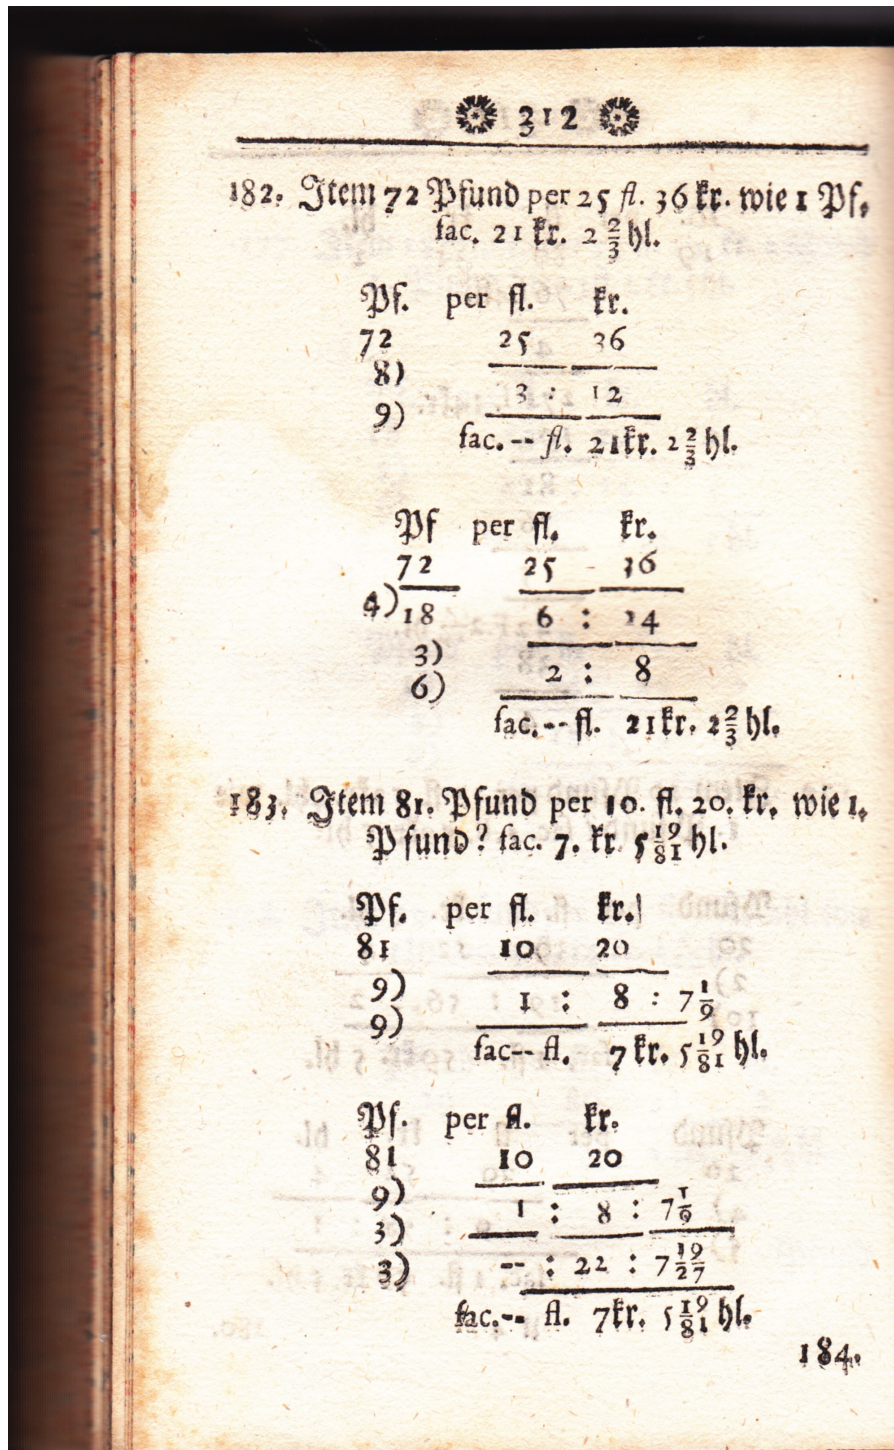 312
182. Item 72 Pfund per 25 fl. 36 kr. wie 1 Pf.
fac. 21 kr. 2 2/3 hl.
Pf. per fl. kr.
72 25 36
8)
3 : 12
9)
fac. -- fl. 21kr. 2 2/3 hl.
Pf per fl. kr.
72 25 - 36
4) 18 6 : 24
3)
2 : 8
6)
fac. -- fl. 21kr. 2 2/3 hl.
183. Item 81. Pfund per 10. fl. 20. kr. wie 1.
Pfund? fac. 7. kr 5 19/81 hl.
Pf. per fl. kr.
81 10 20
9)
1 : 8 : 7 1/9
9)
fac-- fl. 7 kr. 5 19/81 hl.
Pf. per fl. kr.
81 10 20
9)
1 : 8 : 7 1/9
3)
-- : 22 : 7 19/27
3)
fac.-- fl. 7kr. 5 19/81 hl.
184.